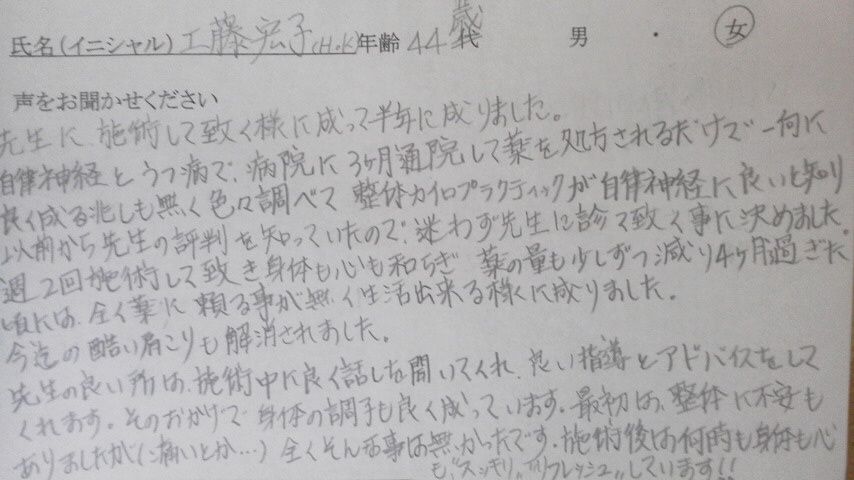 氏名(イニシャル) 工藤宏子(H.K) 年齢 44歳代 男 ・ 女
声をお聞かせください
先生に、施術して致く様に成って半年に成りました。
自律神経とうつ病で、病院に3ヶ月通院して薬を処方されるだけで一向に
良く成る兆しも無く色々調べて 整体カイロプラクティックが自律神経に良いと知り
以前から先生の評判を知っていたので、迷わず先生に診て致く事に決めました。
週2回施術して致き身体も心も和らぎ 薬の量も少しずつ減り4ヶ月過ぎた
頃には、全く薬に頼る事が無く生活出来る様に成りました。
今迄の酷い肩こりも解消されました。
先生の良い所は、施術中に良く話しを聞いてくれ、良い指導とアドバイスをして
くれます。そのおかげで身体の調子も良く成っています。最初は、整体に不安も
ありましたが(痛いとか…)全くそんな事は無かったです。施術後は何時も身体も心
も、"スッキリ"、"リフレッシュ"しています!!